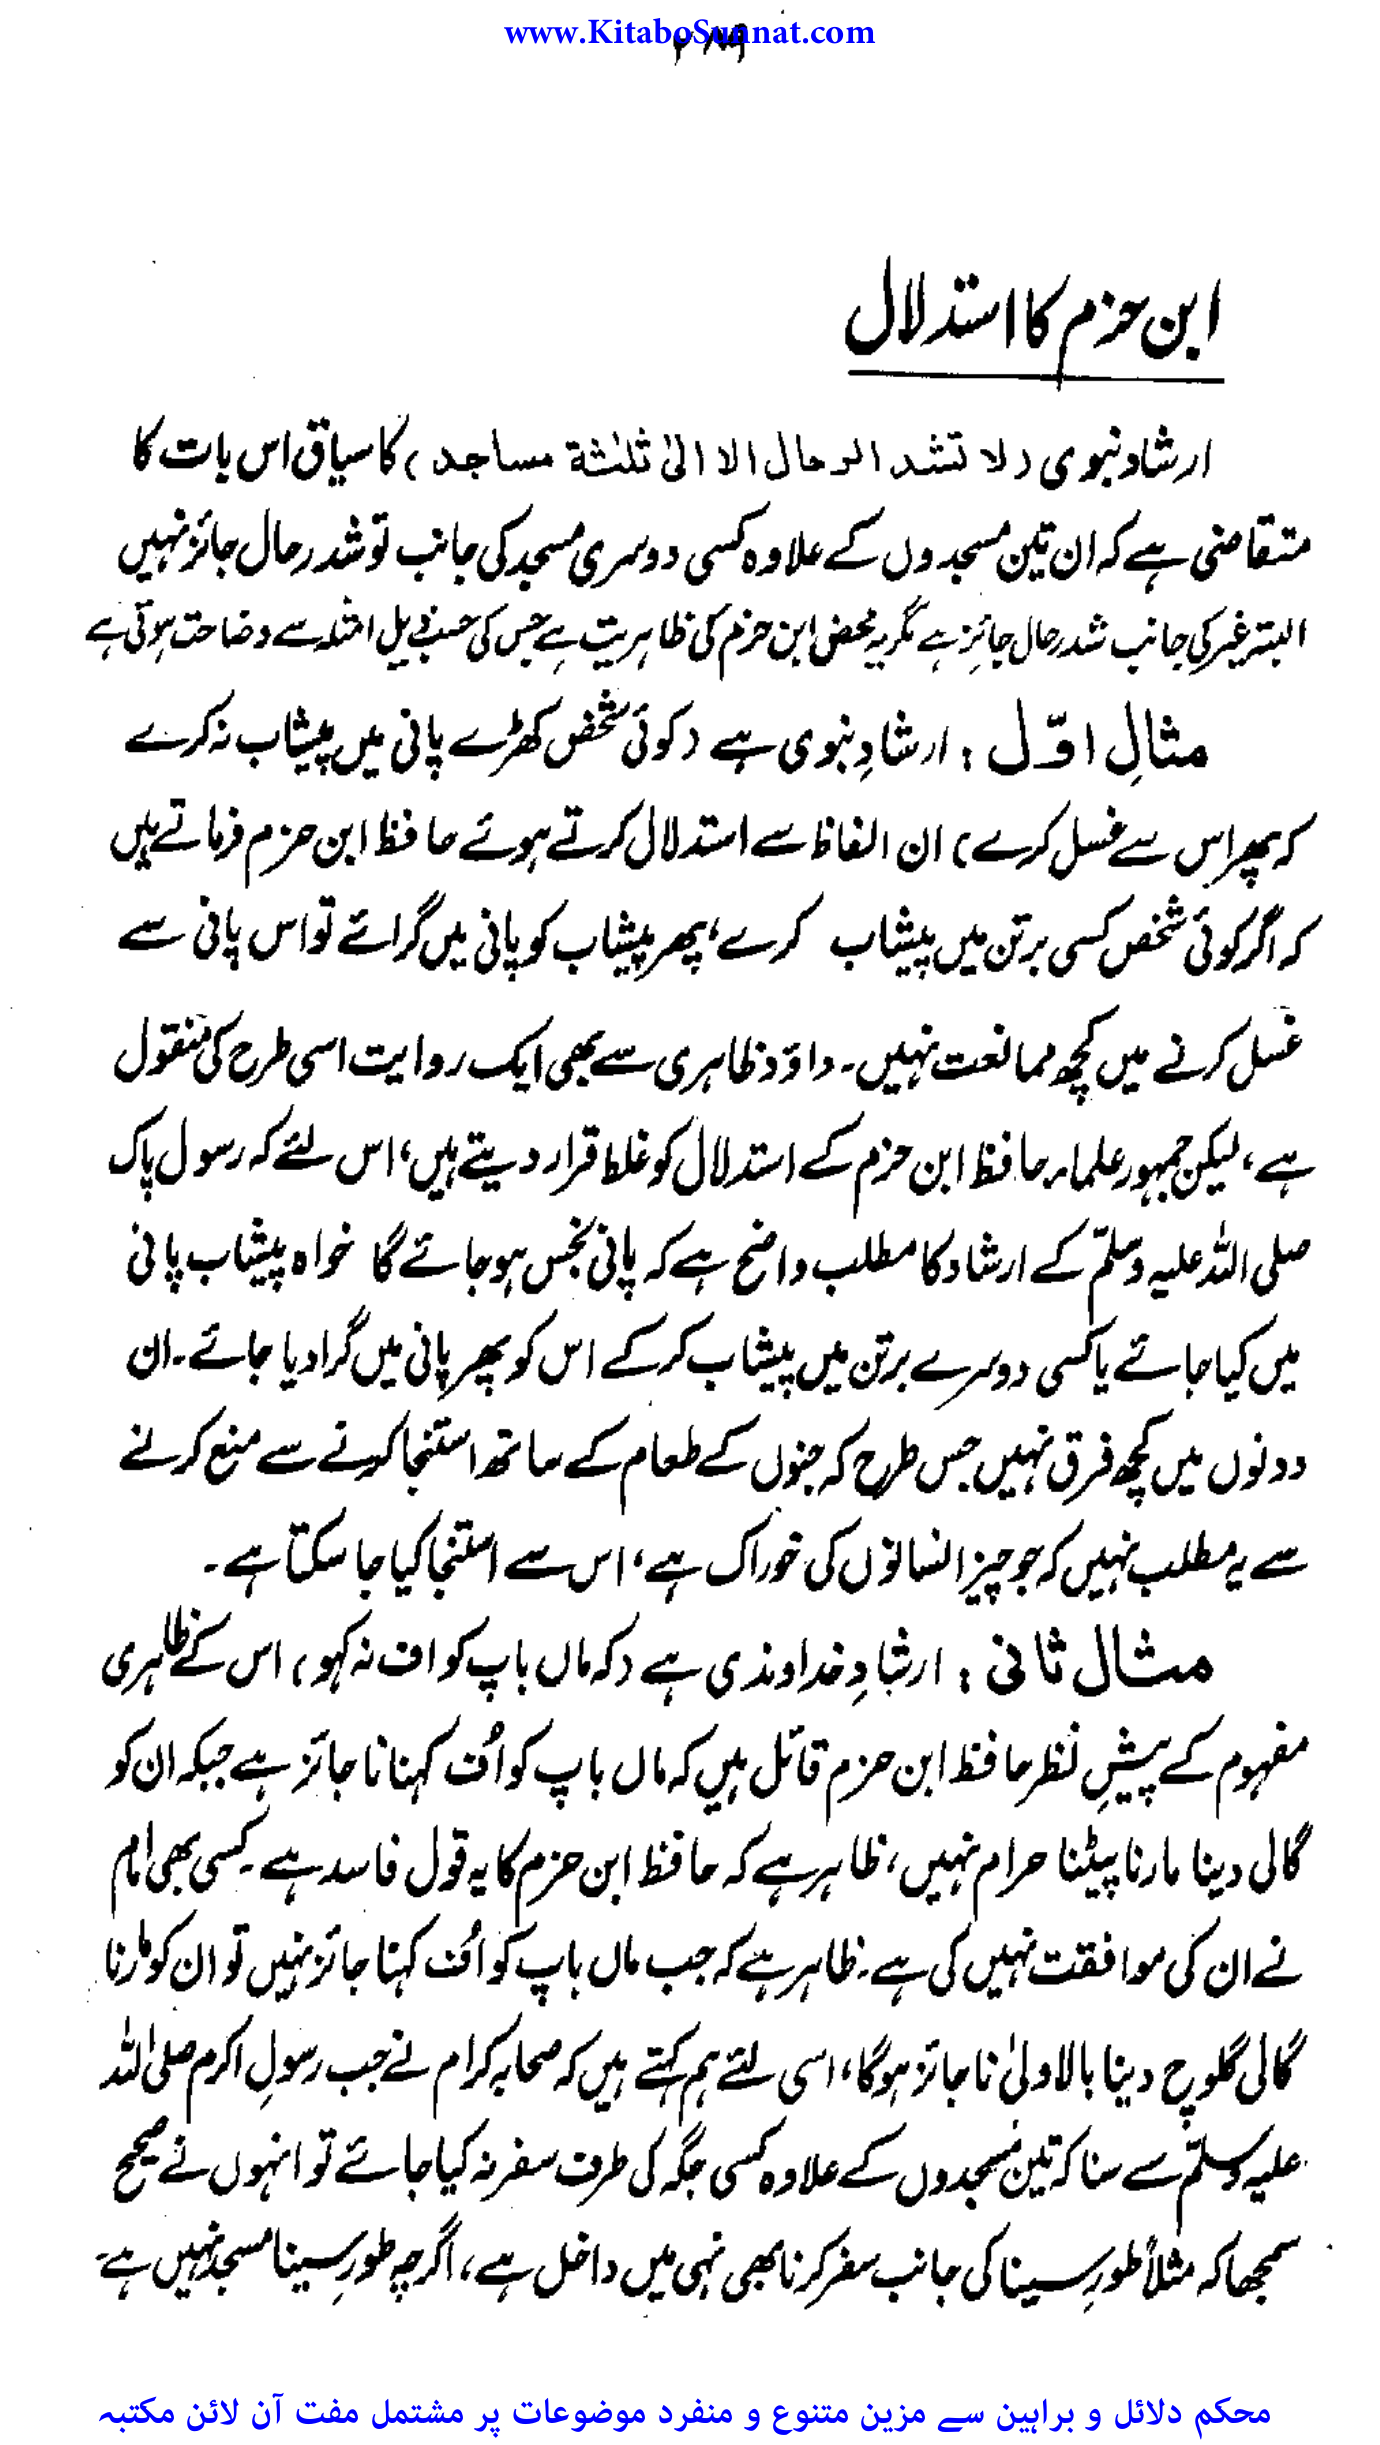 www.KitaboSunnat.com
۲۸۹
ابن حزم کا استدلال
ارشاد نبوی (لا تشد الرحال الا الیٰ ثلٰثة مساجد) کا سیاق اس بات کا
متقاضی ہے کہ ان تین مسجدوں کے علاوہ کسی دوسری مسجد کی جانب تو شد رحال جائز نہیں
البتہ غیر کی جانب شد رحال جائز ہے مگر یہ محض ابن حزم کی ظاہریت ہے جس کی حسب ذیل امثلہ سے وضاحت ہوتی ہے
مثالِ اوّل : ارشادِ نبوی ہے (کوئی شخص کھڑے پانی میں پیشاب نہ کرے
کہ پھر اس سے غسل کرے) ان الفاظ سے استدلال کرتے ہوئے حافظ ابن حزم فرماتے ہیں
کہ اگر کوئی شخص کسی برتن میں پیشاب کرے، پھر پیشاب کو پانی میں گرائے تو اس پانی سے
غسل کرنے میں کچھ ممانعت نہیں۔ داؤد ظاہری سے بھی ایک روایت اسی طرح کی منقول
ہے، لیکن جمہور علماء حافظ ابن حزم کے استدلال کو غلط قرار دیتے ہیں، اس لئے کہ رسول پاک
صلی اللہ علیہ وسلّم کے ارشاد کا مطلب واضح ہے کہ پانی نجس ہو جائے گا خواہ پیشاب پانی
میں کیا جائے یا کسی دوسرے برتن میں پیشاب کر کے اس کو پھر پانی میں گرا دیا جائے۔ ان
دونوں میں کچھ فرق نہیں جس طرح کہ جنوں کے طعام کے ساتھ استنجا کرنے سے منع کرنے
سے یہ مطلب نہیں کہ جو چیز انسانوں کی خوراک ہے، اس سے استنجا کیا جا سکتا ہے۔
مثال ثانی : ارشادِ خداوندی ہے (کہ ماں باپ کو اف نہ کہو) اس کے ظاہری
مفہوم کے پیشِ نظر حافظ ابن حزم قائل ہیں کہ ماں باپ کو اُف کہنا ناجائز ہے جبکہ ان کو
گالی دینا مارنا پیٹنا حرام نہیں، ظاہر ہے کہ حافظ ابن حزم کا یہ قول فاسد ہے۔ کسی بھی امام
نے ان کی موافقت نہیں کی ہے۔ ظاہر ہے کہ جب ماں باپ کو اُف کہنا جائز نہیں تو ان کو مارنا
گالی گلوچ دینا بالاولیٰ ناجائز ہوگا، اسی لئے ہم کہتے ہیں کہ صحابہ کرام نے جب رسولِ اکرم صلی اللہ
علیہ وسلّم سے سنا کہ تین مسجدوں کے علاوہ کسی جگہ کی طرف سفر نہ کیا جائے تو انہوں نے صحیح
سمجھا کہ مثلاً طورِ سینا کی جانب سفر کرنا بھی نہی میں داخل ہے، اگرچہ طورِ سینا مسجد نہیں ہے۔
محکم دلائل و براہین سے مزین متنوع و منفرد موضوعات پر مشتمل مفت آن لائن مکتبہ